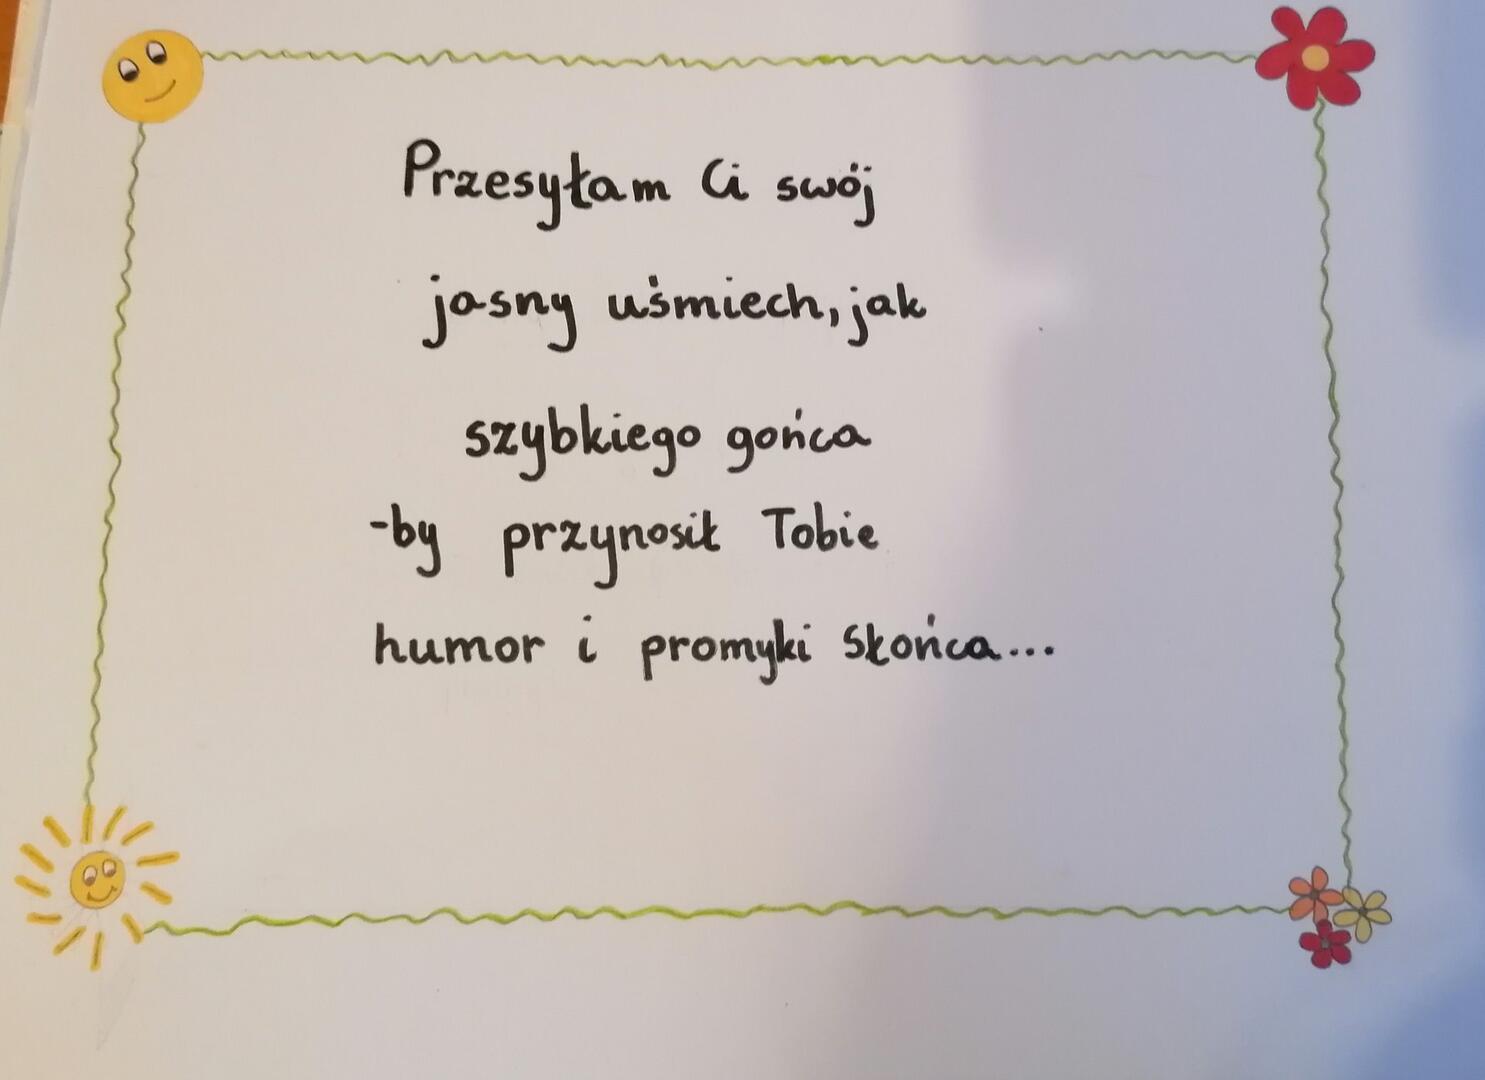 Przesyłam Ci swój
jasny uśmiech, jak
szybkiego gońca
-by przynosił Tobie
humor i promyki Słońca...